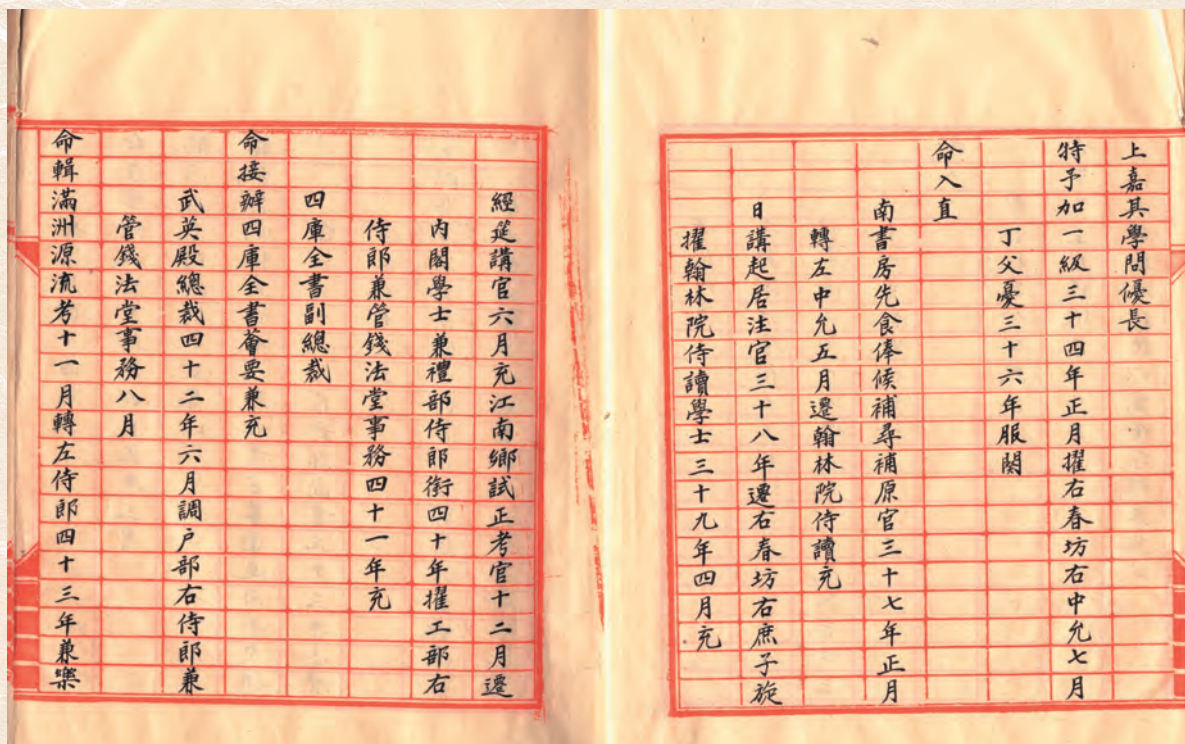 上嘉其學問優長
特予加一級三十四年正月擢右春坊右中允七月
丁父憂三十六年服闋
命入直
南書房先食俸候補尋補原官三十七年正月
轉左中允五月遷翰林院侍讀充
日講起居注官三十八年遷右春坊右庶子旋
擢翰林院侍讀學士三十九年四月充
經筵講官六月充江南鄉試正考官十二月遷
內閣學士兼禮部侍郎銜四十年擢工部右
侍郎兼管錢法堂事務四十一年充
四庫全書副總裁
命接辦四庫全書薈要兼充
武英殿總裁四十二年六月調户部右侍郎兼
管錢法堂事務八月
命輯滿洲源流考十一月轉左侍郎四十三年兼樂